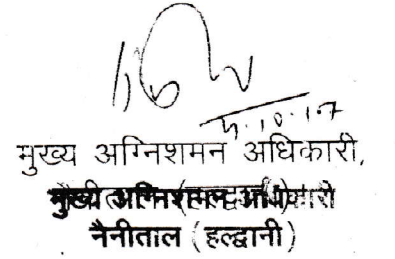 5.10.17
मुख्य अग्निशमन अधिकारी,
मुख्य अग्निशमन अधिकारी
नैनीताल (हल्द्वानी)